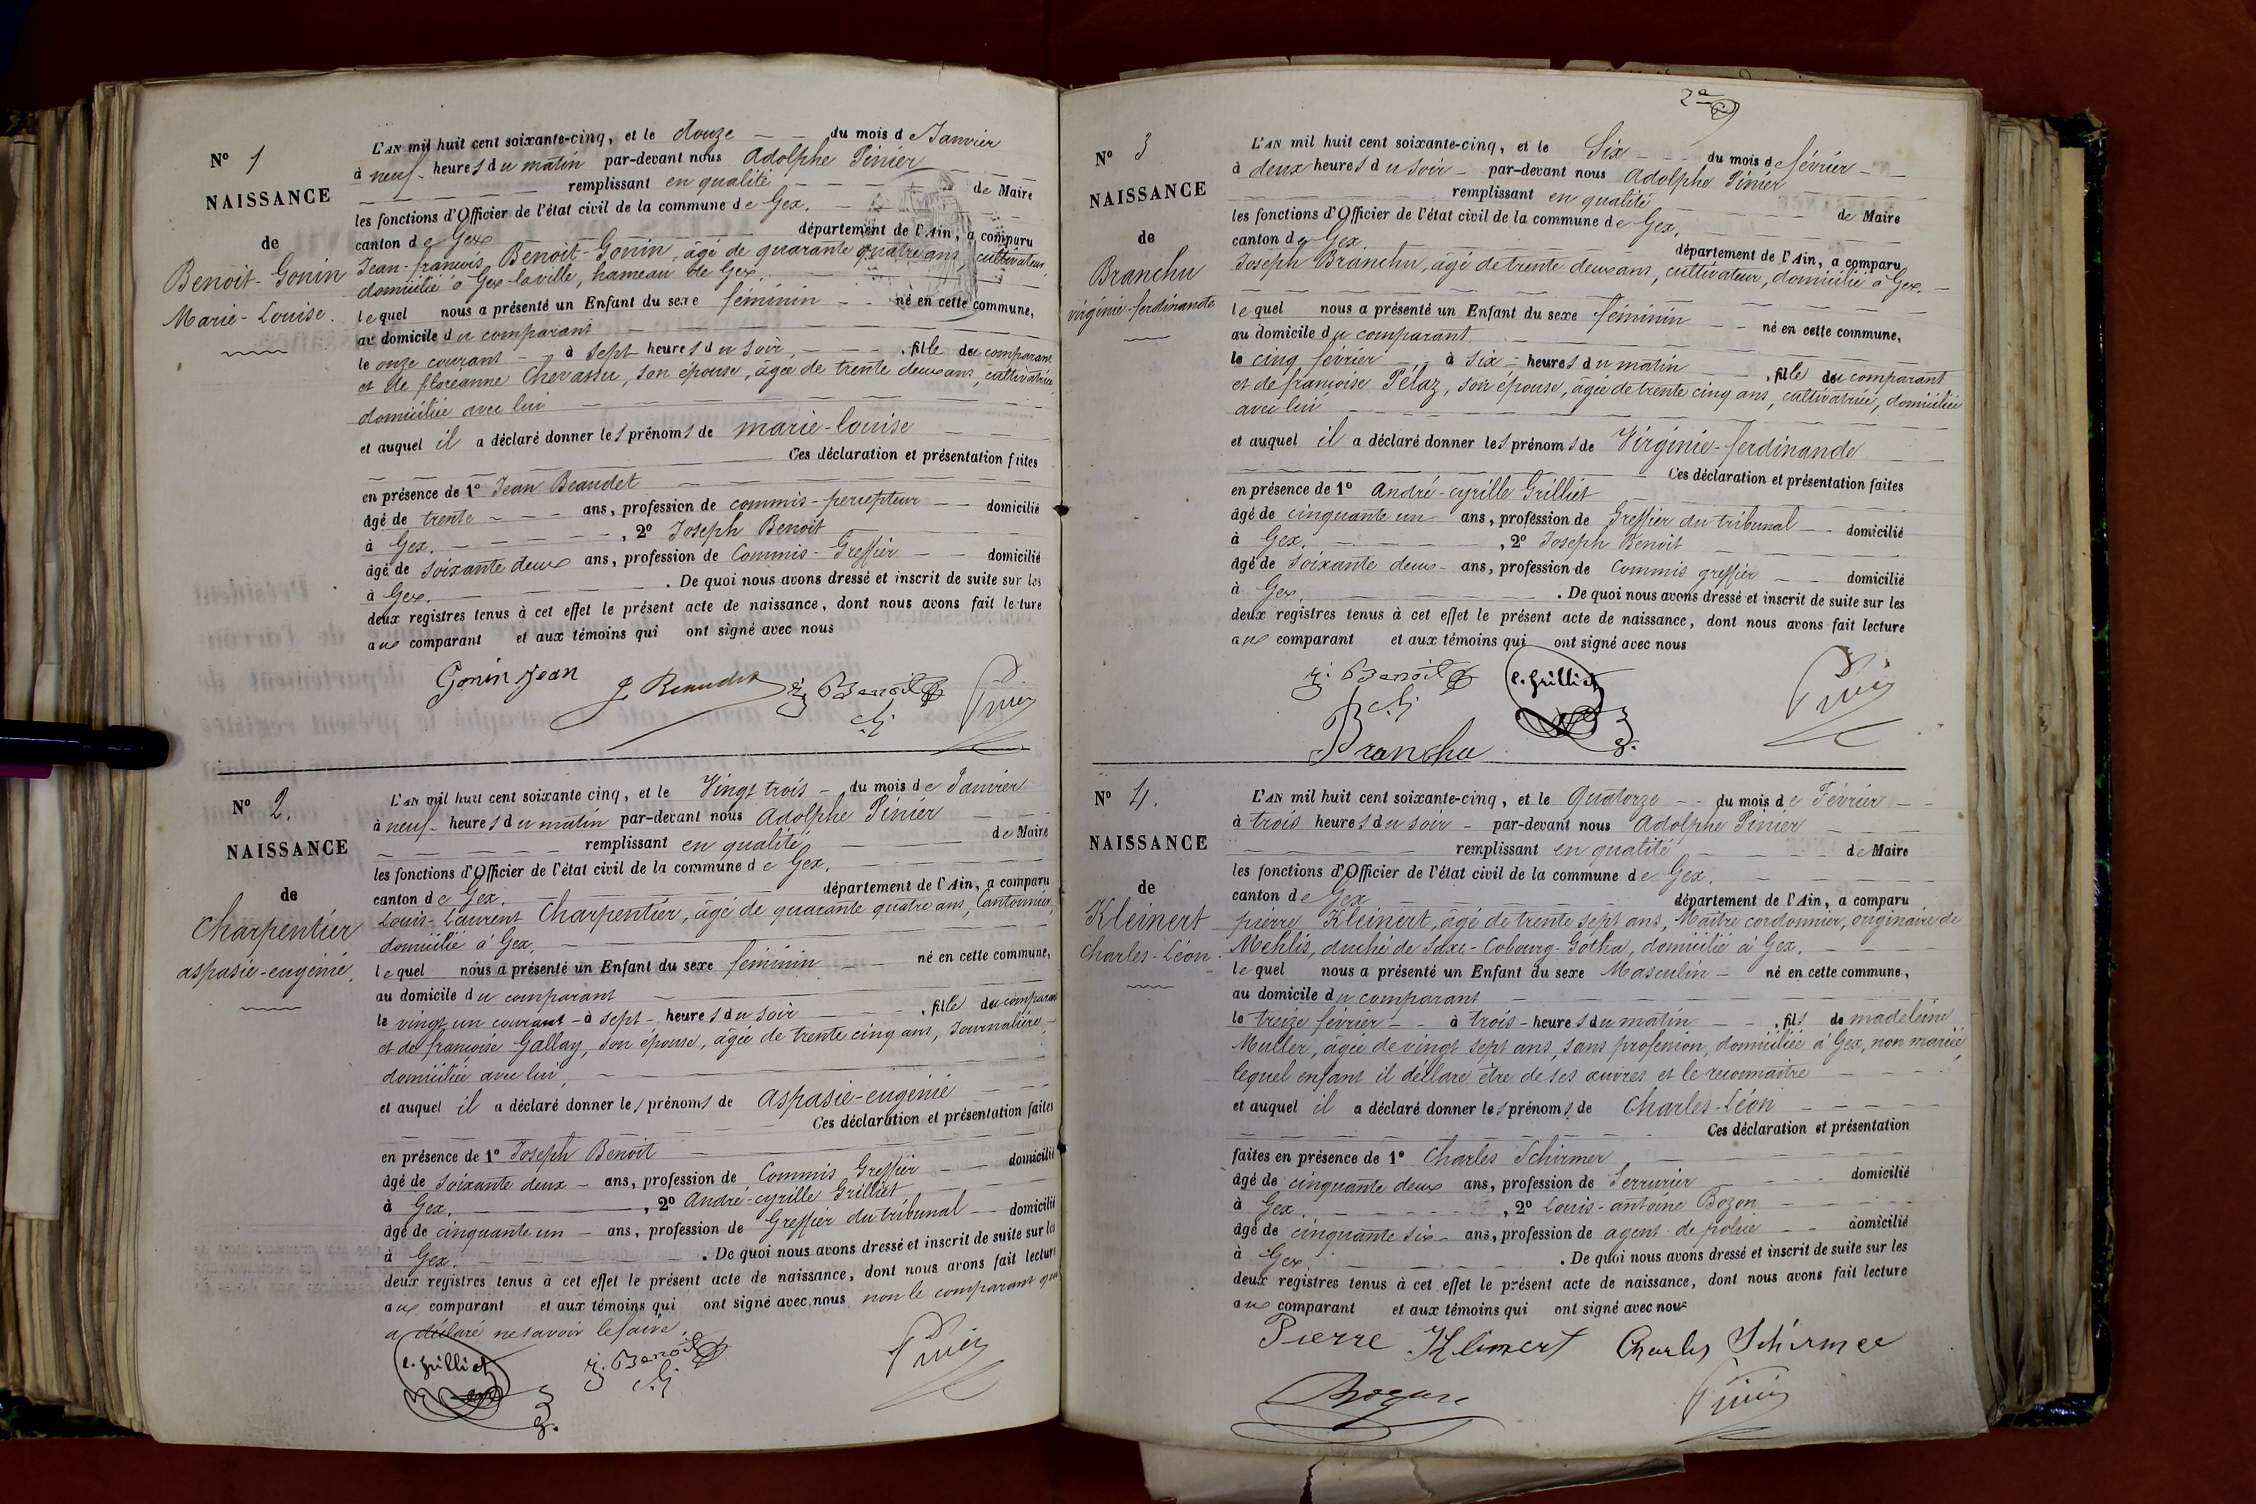 N° 1
NAISSANCE
de
Benoit-Gonin
Marie-Louise.
L'AN mil huit cent soixante-cinq, et le douze du mois de Janvier
à neuf heures du matin par-devant nous Adolphe Pinier
remplissant en qualité de Maire
les fonctions d'Officier de l'état civil de la commune de Gex.
canton de Gex département de l'Ain, a comparu
Jean-françois Benoit-Gonin, âgé de quarante quatre ans, cultivateur,
domicilié à Gex-la-ville, hameau de Gex,
lequel nous a présenté un Enfant du sexe féminin né en cette commune,
au domicile du comparant
le onze courant à sept heures du soir, fille du comparant
et de floréanne Chevassu, son épouse, âgée de trente deux ans, cultivatrice,
domiciliée avec lui
et auquel il a déclaré donner les prénoms de marie-louise
Ces déclaration et présentation faites
en présence de 1° Jean Beaudet
âgé de trente ans, profession de commis-percepteur domicilié
à Gex. , 2° Joseph Benoit
âgé de soixante deux ans, profession de Commis-Greffier domicilié
à Gex. . De quoi nous avons dressé et inscrit de suite sur les
deux registres tenus à cet effet le présent acte de naissance, dont nous avons fait lecture
aux comparant et aux témoins qui ont signé avec nous
Gonin Jean J Beaudet j. Benoit Pinier
N° 2.
NAISSANCE
de
Charpentier
aspasie-eugénie.
L'AN mil huit cent soixante cinq, et le Vingt trois du mois de Janvier
à neuf heures du matin par-devant nous Adolphe Pinier
remplissant en qualité de Maire
les fonctions d'Officier de l'état civil de la commune de Gex.
canton de Gex. département de l'Ain, a comparu
Louis-Laurent Charpentier, âgé de quarante quatre ans, Cantonnier,
domicilié à Gex,
lequel nous a présenté un Enfant du sexe féminin né en cette commune,
au domicile du comparant
le vingt un courant à sept heures du soir , fille du comparant
et de françoise Gallay, son épouse, âgée de trente cinq ans, Journalière,
domiciliée avec lui,
et auquel il a déclaré donner les prénoms de aspasie-eugénie
Ces déclaration et présentation faites
en présence de 1° Joseph Benoit
âgé de soixante deux ans, profession de Commis Greffier domicilié
à Gex. , 2° André-cyrille Grilliet
âgé de cinquante un ans, profession de Greffier du tribunal domicilié
à Gex. . De quoi nous avons dressé et inscrit de suite sur les
deux registres tenus à cet effet le présent acte de naissance, dont nous avons fait lecture
aux comparant et aux témoins qui ont signé avec nous, non le comparant qui
a déclaré ne savoir le faire.
c. Grilliet j. Benoit Pinier
2e
N° 3
NAISSANCE
de
Branchu
virginie-ferdinande
L'AN mil huit cent soixante-cinq, et le Six du mois de février
à deux heures du soir par-devant nous Adolphe Pinier
remplissant en qualité de Maire
les fonctions d'Officier de l'état civil de la commune de Gex,
canton de Gex. département de l'Ain, a comparu
Joseph Branchu, âgé de trente deux ans, cultivateur, domicilié à Gex.
lequel nous a présenté un Enfant du sexe féminin né en cette commune,
au domicile du comparant
le cinq février à six heures du matin , fille du comparant
et de françoise Pélaz, son épouse, âgée de trente cinq ans, cultivatrice, domiciliée
avec lui
et auquel il a déclaré donner les prénoms de Virginie-ferdinande
Ces déclaration et présentation faites
en présence de 1° André-cyrille Grilliet
âgé de cinquante un ans, profession de Greffier du tribunal domicilié
à Gex. , 2° Joseph Benoit
âgé de soixante deux ans, profession de Commis greffier domicilié
à Gex. . De quoi nous avons dressé et inscrit de suite sur les
deux registres tenus à cet effet le présent acte de naissance, dont nous avons fait lecture
aux comparant et aux témoins qui ont signé avec nous
j. Benoit c. Grilliet Pinier
Branchu
N° 4.
NAISSANCE
de
Kleinert
Charles-Léon.
L'AN mil huit cent soixante-cinq, et le Quatorze du mois de Février
à trois heures du soir par-devant nous Adolphe Pinier
remplissant en qualité de Maire
les fonctions d'Officier de l'état civil de la commune de Gex.
canton de Gex département de l'Ain, a comparu
pierre Kleinert, âgé de trente sept ans, Maître cordonnier, originaire de
Mehlis, duché de Saxe-Cobourg-Gotha, domicilié à Gex.
lequel nous a présenté un Enfant du sexe Masculin né en cette commune,
au domicile du comparant
le treize février à trois heures du matin , fils de madeleine
Muller, âgée de vingt sept ans, sans profession, domiciliée à Gex, non mariée,
lequel enfant il déclare être de ses œuvres et le reconnaître
et auquel il a déclaré donner les prénoms de Charles-Léon
Ces déclaration et présentation
faites en présence de 1° Charles Schirmer
âgé de cinquante deux ans, profession de Serrurier domicilié
à Gex. , 2° Louis-antoine Bozon
âgé de cinquante six ans, profession de agent de police domicilié
à Gex. . De quoi nous avons dressé et inscrit de suite sur les
deux registres tenus à cet effet le présent acte de naissance, dont nous avons fait lecture
aux comparant et aux témoins qui ont signé avec nous
Pierre Kleinert Charles Schirmer
Bozon Pinier